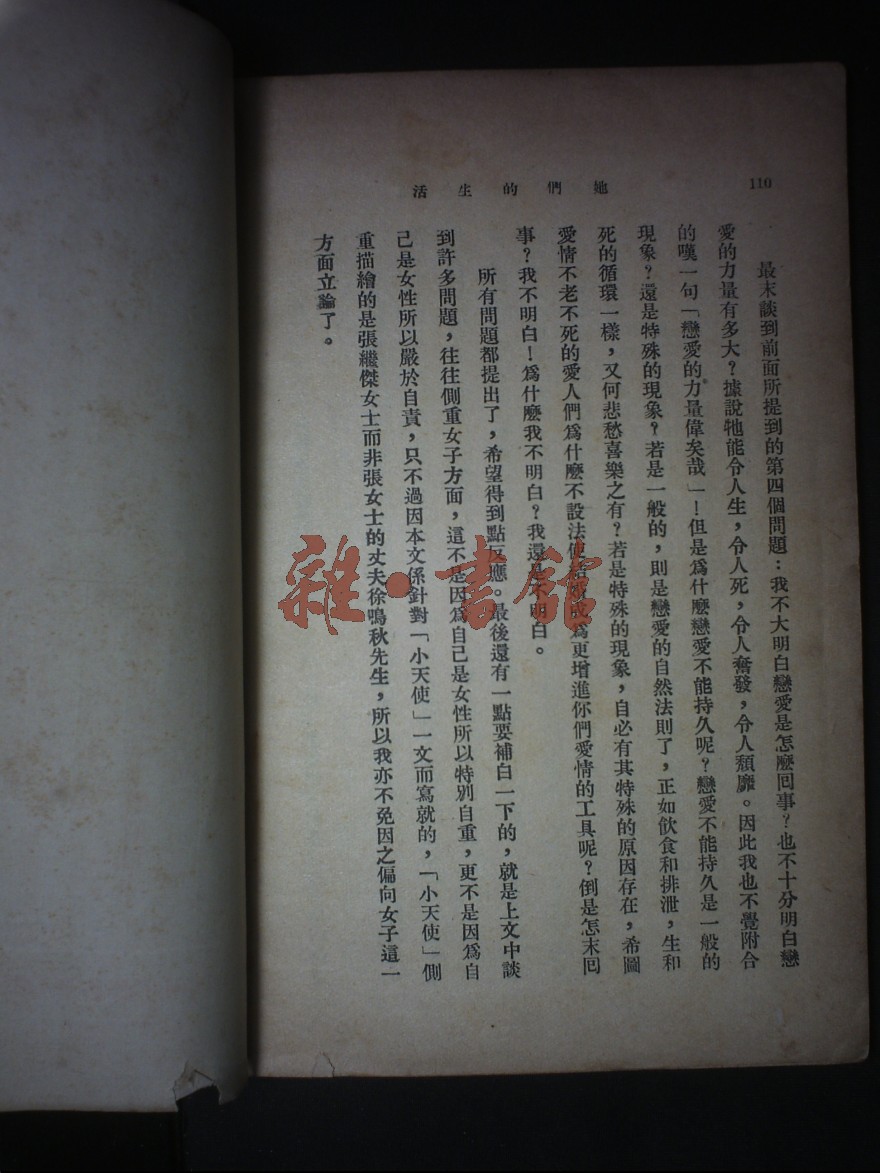 110
她們的生活
最末談到前面所提到的第四個問題：我不大明白戀愛是怎麼囘事？也不十分明白戀
愛的力量有多大？據說牠能令人生，令人死，令人奮發，令人頹靡。因此我也不覺附合
的嘆一句「戀愛的力量偉矣哉」！但是爲什麼戀愛不能持久呢？戀愛不能持久是一般的
現象？還是特殊的現象？若是一般的，則是戀愛的自然法則了，正如飲食和排泄，生和
死的循環一樣，又何悲愁喜樂之有？若是特殊的現象，自必有其特殊的原因存在，希圖
愛情不老不死的愛人們爲什麼不設法使結婚成爲更增進你們愛情的工具呢？倒是怎末囘
事？我不明白！爲什麼我不明白？我還是不明白。
所有問題都提出了，希望得到點反應。最後還有一點要補白一下的，就是上文中談
到許多問題，往往側重女子方面，這不是因爲自己是女性所以特別自重，更不是因爲自
己是女性所以嚴於自責，只不過因本文係針對「小天使」一文而寫就的，「小天使」側
重描繪的是張繼傑女士而非張女士的丈夫徐鳴秋先生，所以我亦不免因之偏向女子這一
方面立論了。
雜·書館